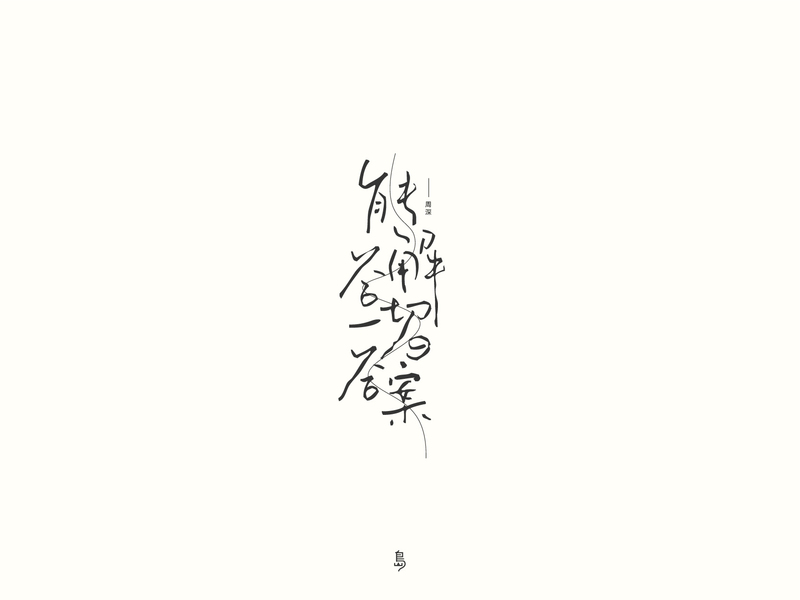 能解答一切の答案
周深
島